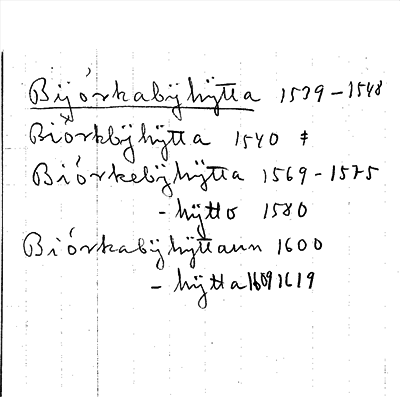 Bijórkabÿhÿtta 1539-1548
Biórkbÿhÿtta 1540 ‡
Biórkebÿhÿtta 1569-1575
- hÿtto 1580
Biórkabÿhÿttann 1600
- hÿtta 1609 1619